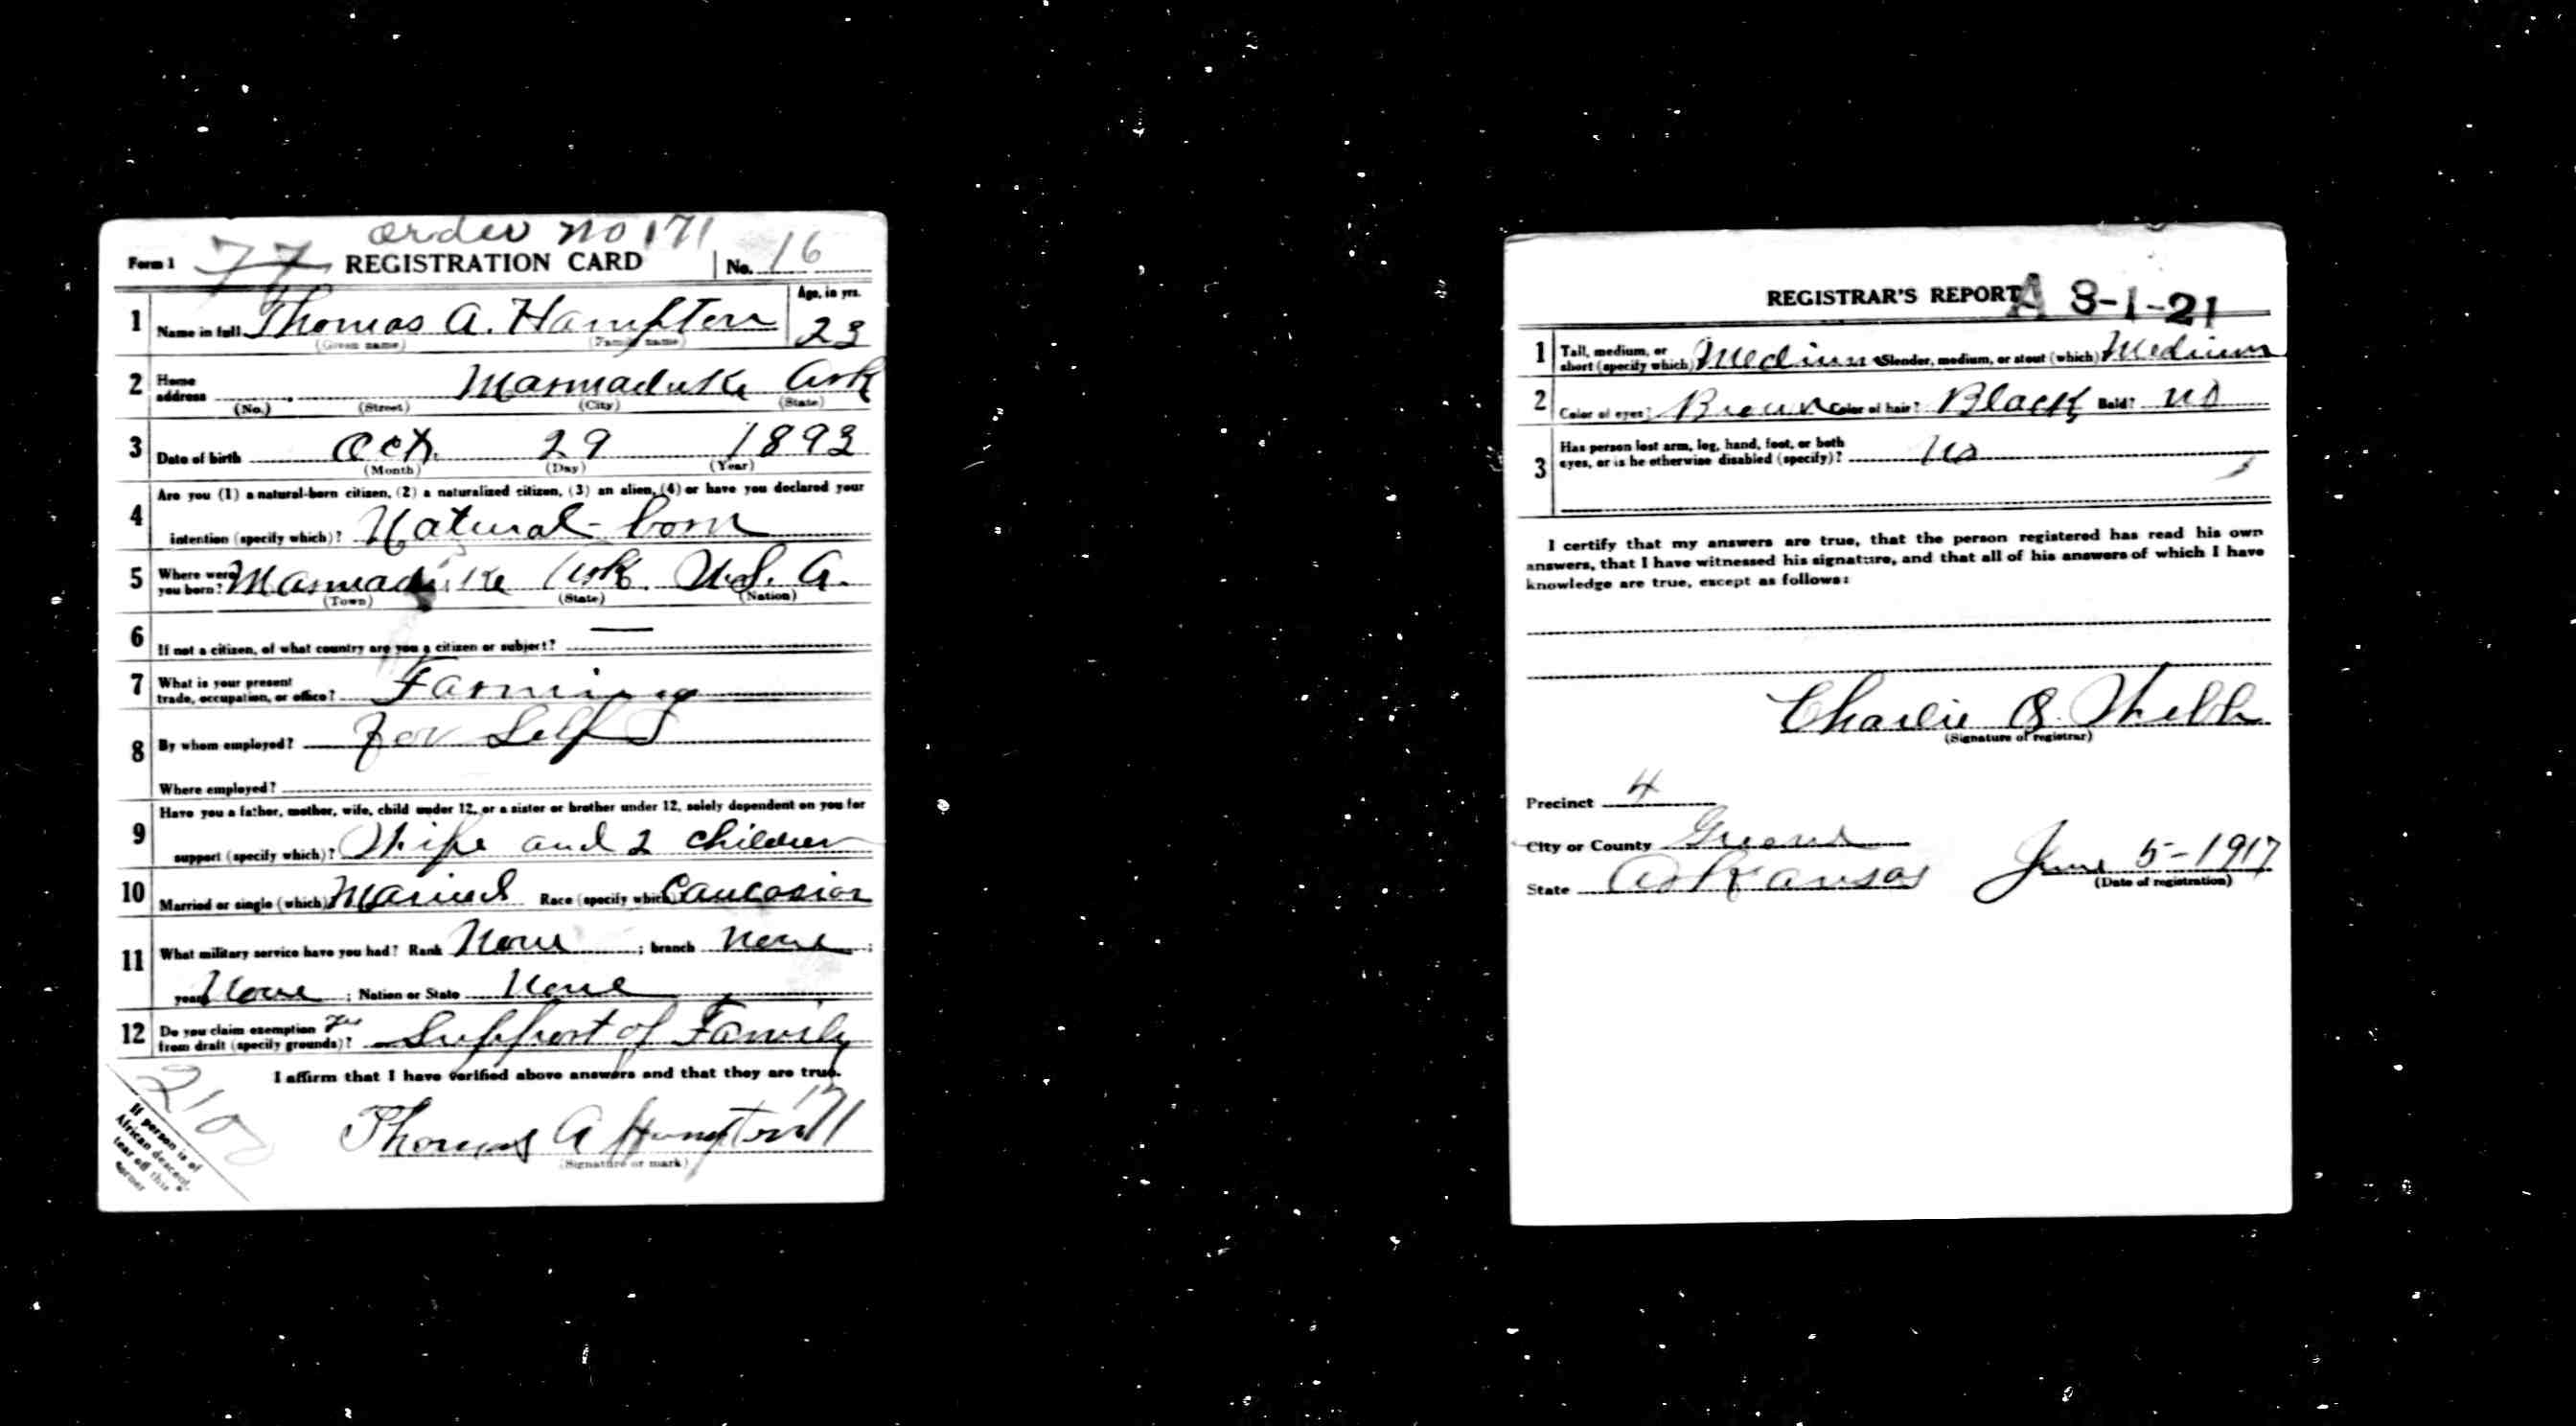 order no 171
Form 1 77 REGISTRATION CARD No. 16
1 Name in full Thomas A. Hampton Age, in yrs. 23
(Given name) (Family name)
2 Home address Marmaduke Ark
(No.) (Street) (City) (State)
3 Date of birth Oct. 29 1893
(Month) (Day) (Year)
4 Are you (1) a natural-born citizen, (2) a naturalized citizen, (3) an alien, (4) or have you declared your
intention (specify which)? Natural-born
5 Where were you born? Marmaduke Ark. U.S.A.
(Town) (State) (Nation)
6 If not a citizen, of what country are you a citizen or subject? —
7 What is your present trade, occupation, or office? Farming
8 By whom employed? for Self
Where employed?
9 Have you a father, mother, wife, child under 12, or a sister or brother under 12, solely dependent on you for
support (specify which)? Wife and 2 children
10 Married or single (which) Married Race (specify which) Caucasian
11 What military service have you had? Rank None ; branch None ;
years None ; Nation or State None
12 Do you claim exemption from draft (specify grounds)? Yes Support of Family
I affirm that I have verified above answers and that they are true.
171
Thomas A Hampton
(Signature or mark)
If person is of
African descent,
tear off this
corner
REGISTRAR'S REPORT A 3-1-21
1 Tall, medium, or short (specify which) Medium Slender, medium, or stout (which) Medium
2 Color of eyes? Brown Color of hair? Black Bald? no
3 Has person lost arm, leg, hand, foot, or both
eyes, or is he otherwise disabled (specify)? no
I certify that my answers are true, that the person registered has read his own
answers, that I have witnessed his signature, and that all of his answers of which I have
knowledge are true, except as follows:
Charlie B. Webb
(Signature of registrar)
Precinct 4
City or County Greene
State Arkansas June 5-1917
(Date of registration)